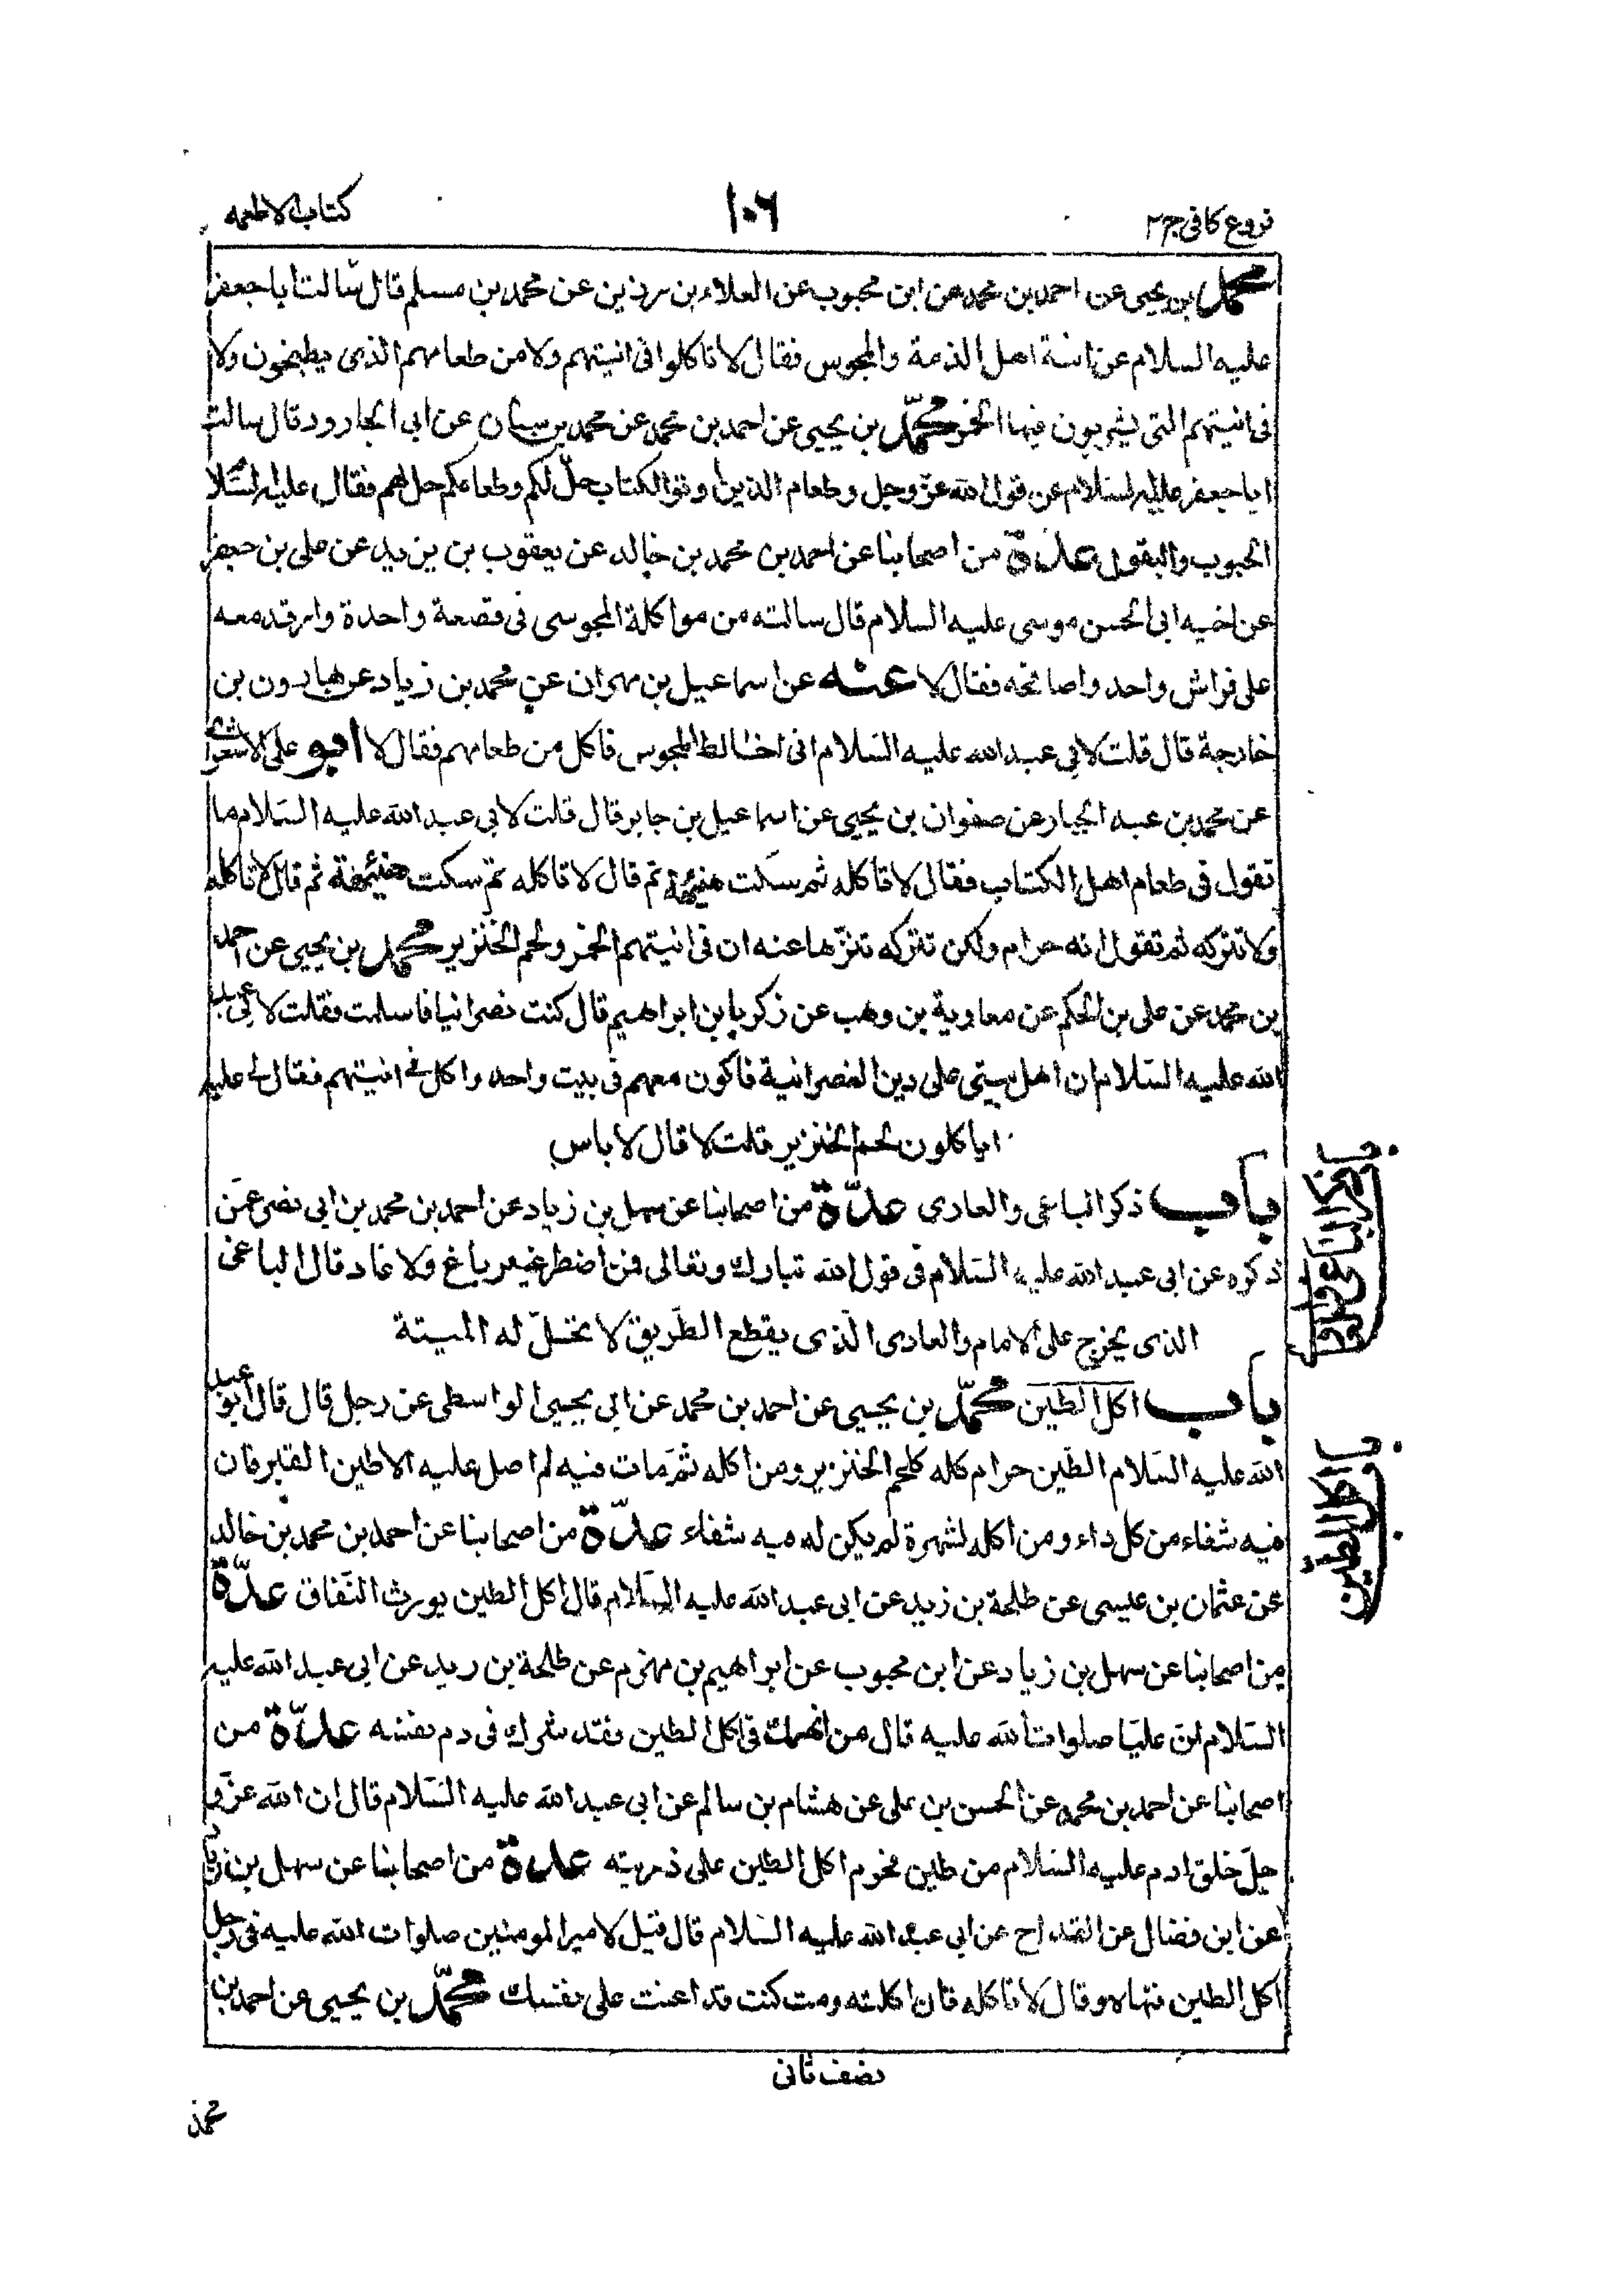 فروع كافى ج ٢
١٠٦
كتاب الاطعمه
محمد بن يحيى عن احمد بن محمد عن ابن محبوب عن العلاء بن رزين عن محمد بن مسلم قال سالت ابا جعفر
عليه السلام عن انية اهل الذمة والمجوس فقال لا تاكلوا فى انيتهم ولا من طعامهم الذى يطبخون ولا
فى انيتهم التى يشربون فيها الخمر محمّد بن يحيى عن احمد بن محمد عن محمد بن سنان عن ابى الجارود قال سالت
ابا جعفر عليه السلام عن قول الله عزّ وجل وطعام الذين اوتوا الكتاب حلّ لكم وطعامكم حل لهم فقال عليه السّلام
الحبوب والبقول عدّة من اصحابنا عن احمد بن محمد بن خالد عن يعقوب بن يزيد عن على بن جعفر
عن اخيه ابى الحسن موسى عليه السلام قال سالته من مواكلة المجوسى فى قصعة واحدة وارقد معه
على فراش واحد واصافحه فقال لا عنه عن اسماعيل بن مهران عن محمد بن زياد عن هارون بن
خارجة قال قلت لابى عبد الله عليه السّلام انى اخالط المجوس فاكل من طعامهم فقال لا ابو على الاشعرى
عن محمد بن عبد الجبار عن صفوان بن يحيى عن اسماعيل بن جابر قال قلت لابى عبد الله عليه السّلام ما
تقول فى طعام اهل الكتاب فقال لا تاكله ثم سكت هنيئة ثم قال لا تاكله ثم سكت هنيئة ثم قال لا تاكله
ولا تتركه ثم تقول انه حرام ولكن تتركه تنزّها عنه ان فى انيتهم الخمر ولحم الخنزير محمد بن يحيى عن احمد
بن محمد عن على بن الحكم عن معاوية بن وهب عن زكريا بن ابراهيم قال كنت نصرانيا فاسلمت فقلت لابى عبد
الله عليه السّلام ان اهل بيتى على دين النصرانية فاكون معهم فى بيت واحد واكل فى انيتهم فقال لى عليه
اياكلون لحم الخنزير قلت لا قال لا باس
باب ذكر الباغى والعادى عدّة من اصحابنا عن سهل بن زياد عن احمد بن محمد بن ابى نصر عمّن
ذكره عن ابى عبد الله عليه السّلام فى قول الله تبارك وتعالى فمن اضطر غير باغ ولا عاد قال الباغى
الذى يخرج على الامام والعادى الّذى يقطع الطّريق لا تحلّ له الميتة
باب اكل الطّين محمّد بن يحيى عن احمد بن محمد عن ابى يحيى الواسطى عن رجل قال قال ابو عبد
الله عليه السّلام الطّين حرام كله كلحم الخنزير ومن اكله ثم مات فيه لم اصل عليه الا طين القبر فان
فيه شفاء من كل داء ومن اكله لشهرة لم يكن له فيه شفاء عدّة من اصحابنا عن احمد بن محمد بن خالد
عن عثمان بن عيسى عن طلحة بن زيد عن ابى عبد الله عليه السّلام قال اكل الطين يورث النّفاق عدّة
من اصحابنا عن سهل بن زياد عن ابن محبوب عن ابراهيم بن مهزم عن طلحة بن زيد عن ابى عبد الله عليه
السّلام انّ عليّا صلوات الله عليه قال من انهمك فى اكل الطين فقد شرك فى دم نفسه عدّة من
اصحابنا عن احمد بن محمد عن الحسن بن على عن هشام بن سالم عن ابى عبد الله عليه السّلام قال ان الله عزّ و
جلّ خلق ادم عليه السّلام من طين فحرم اكل الطين على ذريته عدة من اصحابنا عن سهل بن زياد
عن ابن فضال عن القداح عن ابى عبد الله عليه السّلام قال قيل لامير المومنين صلوات الله عليه فى رجل
اكل الطين فنهاه وقال لا تاكله فان اكلته ومت كنت قد اعنت على نفسك محمّد بن يحيى عن احمد بن
فى ذكر الباغى والعادى
فى اكل الطين
نصف ثانى
محمد